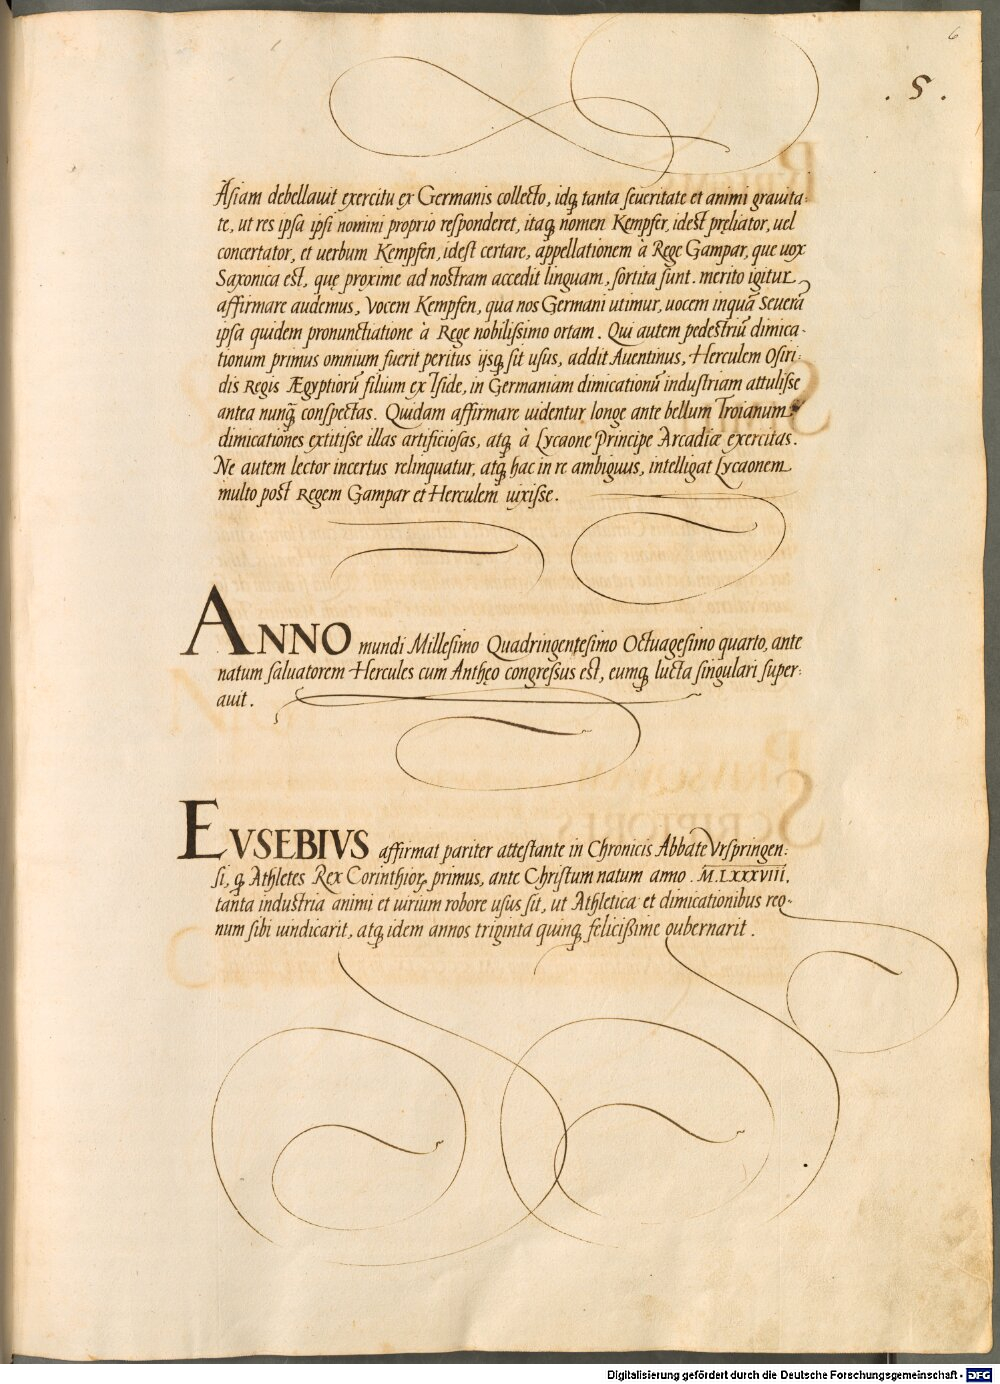 6
. 5 .
Asiam debellauit exercitu ex Germanis collecto, idq; tanta seueritate et animi grauita-
te, ut res ipsa ipsi nomini proprio responderet, itaq; nomen Kempfer, idest pręliator, uel
concertator, et uerbum Kempfen, idest certare, appellationem à Rege Gampar, que uox
Saxonica est, quę proxime ad nostram accedit linguam, sortita sunt. merito igitur
affirmare audemus, Vocem Kempfen, qua nos Germani utimur, uocem inquā Seuerā
ipsa quidem pronunctiatione à Rege nobilissimo ortam. Qui autem pedestriū dimica-
tionum primus omnium fuerit peritus ijsq; sit usus, addit Auentinus, Herculem Osiri-
dis Regis Ægyptiorū filium ex Iside, in Germaniam dimicationū industriam attulisse
antea nunq̄ conspectas. Quidam affirmare uidentur longe ante bellum Troianum
dimicationes extitisse illas artificiosas, atq; à Lycaone Principe Arcadiæ exercitas.
Ne autem lector incertus relinquatur, atq; hac in re ambiguus, intelligat Lycaonem
multo post Regem Gampar et Herculem uixisse.
ANNO mundi Millesimo Quadringentesimo Octuagesimo quarto, ante
natum saluatorem Hercules cum Anthęo congressus est, eumq; lucta singulari super-
auit.
EVSEBIVS affirmat pariter attestante in Chronicis Abbate Vrspringen-
si, q; Athletes Rex Corinthioꝝ primus, ante Christum natum anno .M.LXXXVIII.
tanta industria animi et uirium robore usus sit, ut Athletica et dimicationibus reg-
num sibi uindicarit, atq; idem annos triginta quinq; felicißime gubernarit.
Digitalisierung gefördert durch die Deutsche Forschungsgemeinschaft - DFG